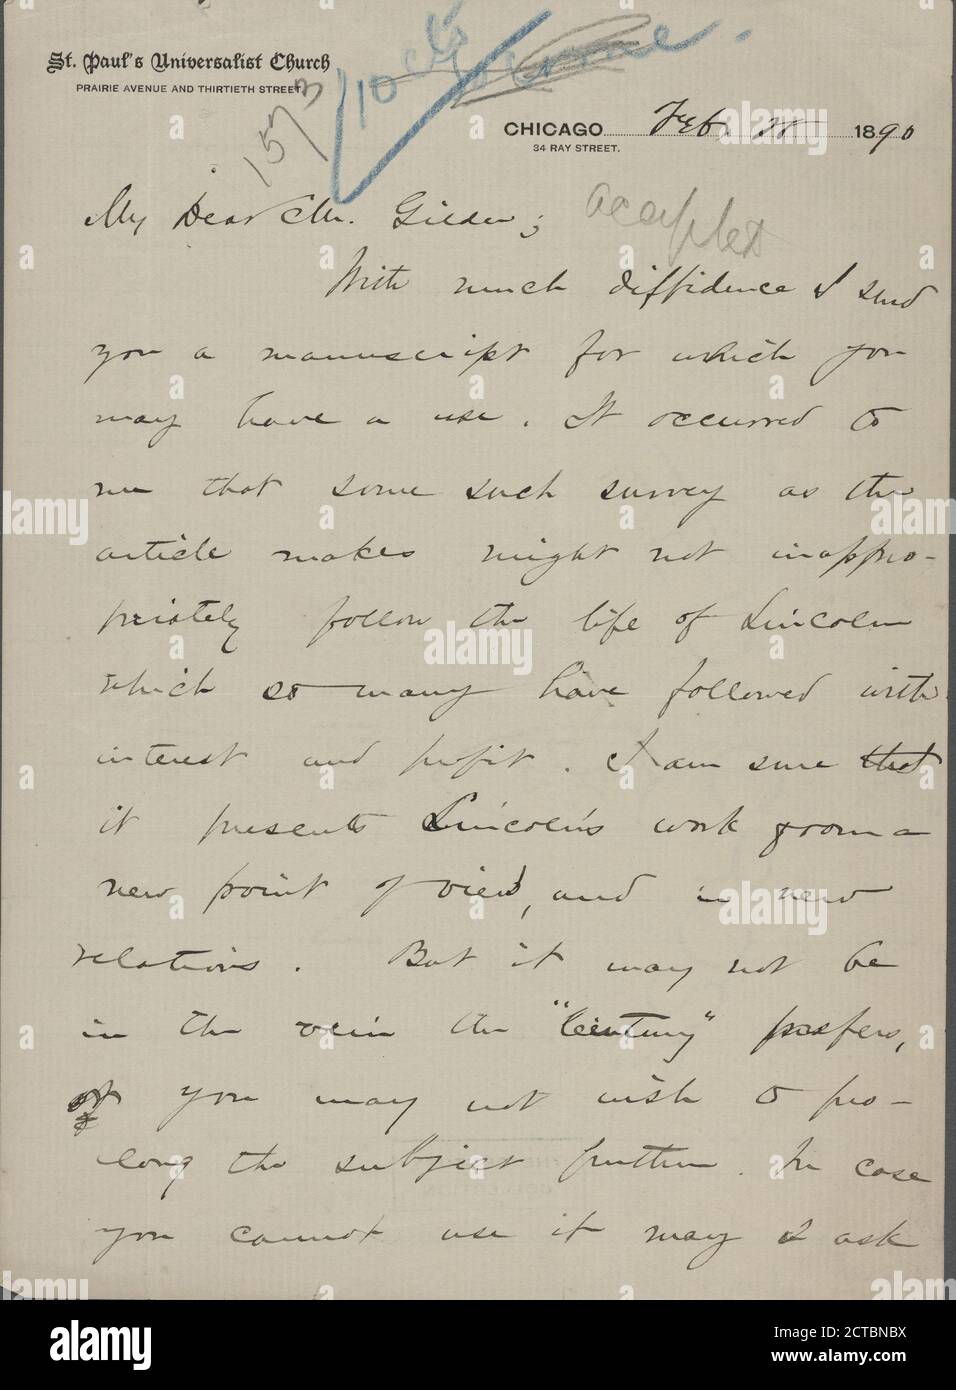 St. Paul's Universalist Church
PRAIRIE AVENUE AND THIRTIETH STREET.
1573
10
CHICAGO Feb. 1890
34 RAY STREET.
My Dear Mr. Gilder;
accepted
With much diffidence I send
you a manuscript for which you
may have a use. It occurred to
me that some such survey as the
article makes might not inappro-
priately follow the life of Lincoln
which so many have followed with
interest and profit. I am sure that
it presents Lincoln's work from a
new point of view, and in new
relations. But it may not be
in the vein the "Century" prefers,
or you may not wish to pro-
long the subject further. In case
you cannot use it may I ask
alamy
Image ID: 2CTBNBX
www.alamy.com